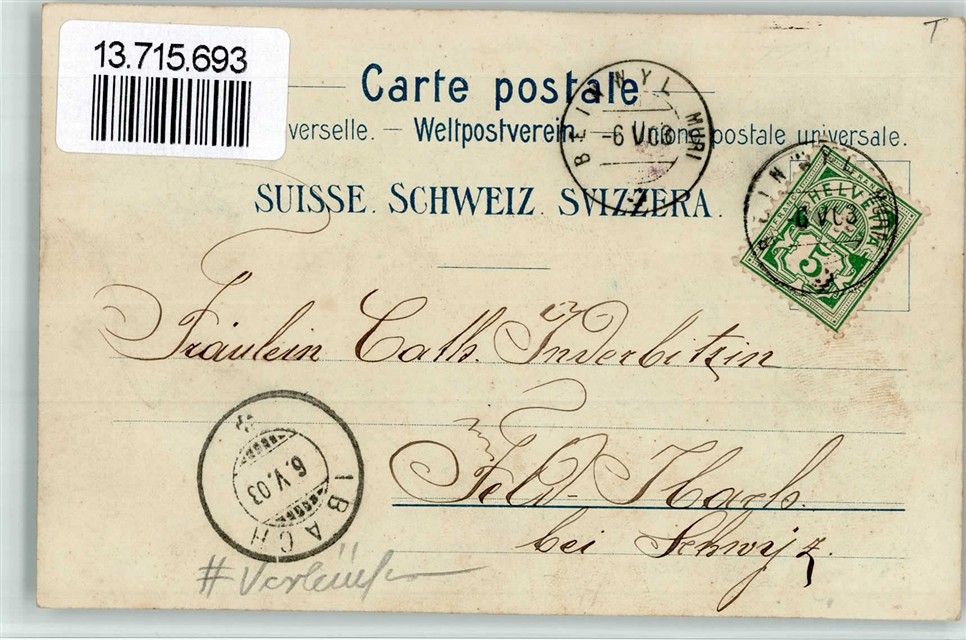 13.715.693
T
Carte postale
verselle. — Weltpostverein. — Unione postale universale.
SUISSE. SCHWEIZ. SVIZZERA.
BEINWYL MURI
-6 V 03
BEINWYL
6 V 03
FRANCO HELVETIA
5
Fräulein Cath. Inderbitzin
in
Feld-Ibach.
bei Schwyz.
IBACH
6.V.03